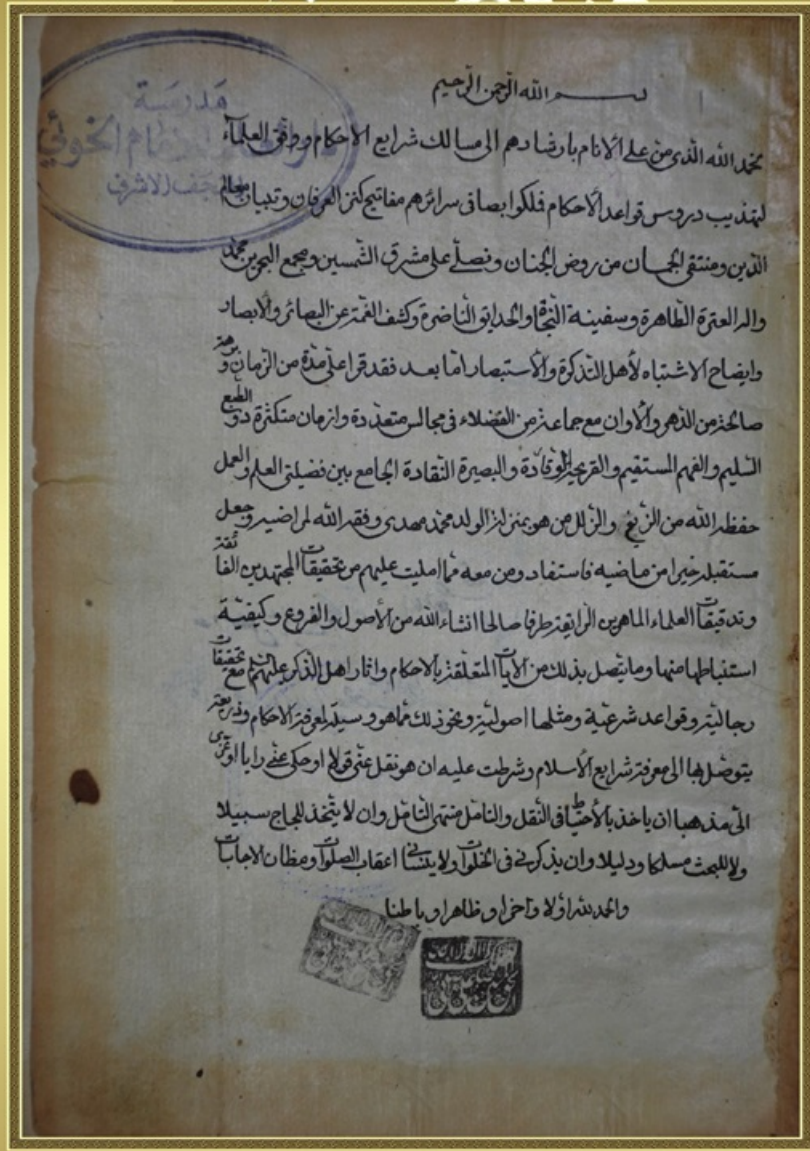 بسم الله الرحمن الرحيم
نحمد الله الذى من على الانام بارشادهم الى مسالك شرايع الاحكام ووفق العلماء
لتهذيب دروس قواعد الأحكام فملكوا بصافى سرائرهم مفاتيح كنز العرفان وتبيان معالم
الدين ومنتقى الجمان من روض الجنان ونصلى على مشرق الشمسين ومجمع البحرين محمد
واله العترة الطاهرة وسفينة النجاة والحدايق الناضرة وكشف الغمة عن البصائر والابصار
وايضاح الاشتباه لأهل التذكرة والاستبصار اما بعد فقد قرا على مدة من الزمان وبرهة
صالحة من الدهر والأوان مع جماعة من الفضلاء فى مجالس متعددة وازمان متكثرة ذو الطبع
السليم والفهم المستقيم والقريحة الوقادة والبصيرة النقادة الجامع بين فضيلتى العلم والعمل
حفظه الله من الزيغ والزلل من هو بمنزلة الولد محمد مهدى وفقه الله لمراضيه وجعل
مستقبله خيرا من ماضيه فاستفاد ومن معه مما امليت عليهم من تحقيقات المجتهدين الفائقة
وتدقيقات العلماء الماهرين الرايقة طرفا صالحا انشاء الله من الأصول والفروع وكيفية
استنباطها منها وما يتصل بذلك من الآيات المتعلقة بالاحكام واثار اهل الذكر عليهم مع تحقيقات
رجالية وقواعد شرعية ومثلها اصولية ونحو ذلك مما هو وسيلة لمعرفة الاحكام وذريعة
يتوصل بها الى معرفة شرايع الأسلام وشرطت عليه ان هو نقل عنى قولا او حكى عنى رايا او عزى
الى مذهبا ان ياخذ بالأحتياط فى النقل والتامل منتهى التامل وان لا يتخذ للجاج سبيلا
ولا للبحث مسلكا ودليلا وان يذكرنى فى الخلوات ولا ينسانى اعقاب الصلوات ومظان الاجابات
والحمد لله اولا واخرا وظاهرا وباطنا
مدرسة
دار العلم للامام الخوئي
النجف الاشرف